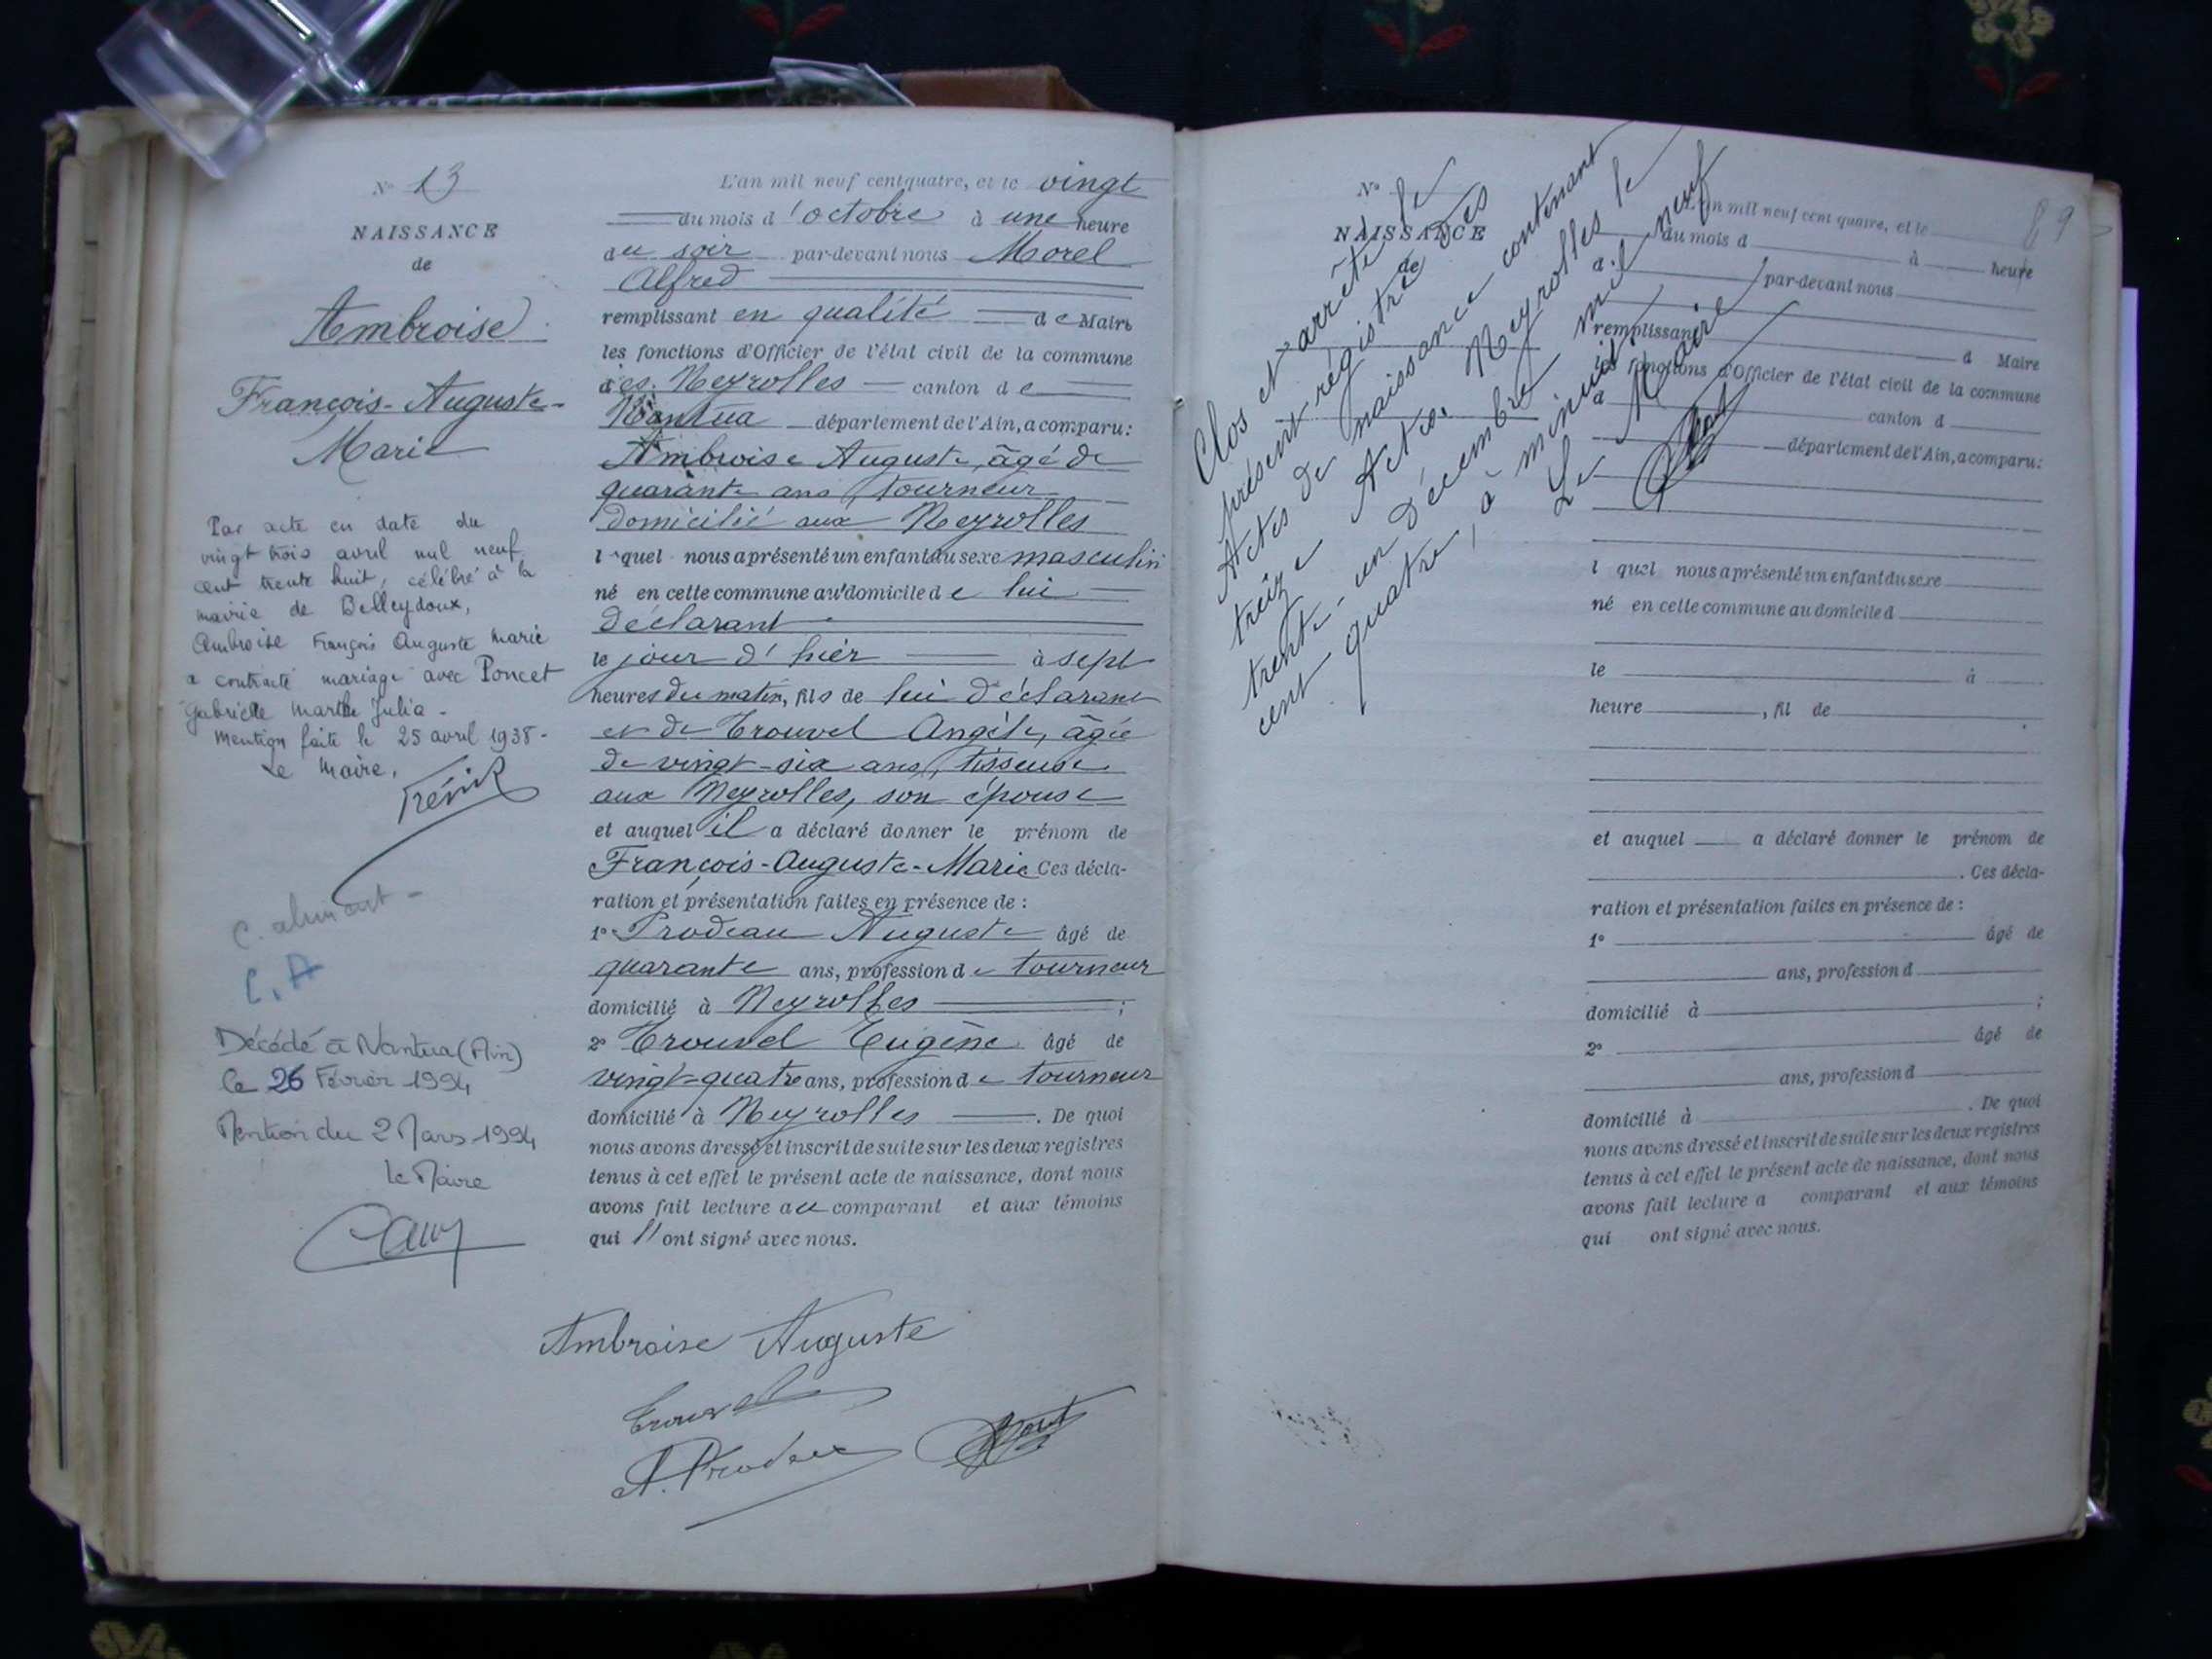 N° 13
NAISSANCE
de
Ambroise
François-Auguste-
Marie
Par acte en date du
vingt trois avril mil neuf
cent trente huit, célébré à la
mairie de Belleydoux,
Ambroise François Auguste Marie
a contracté mariage avec Poncet
Gabrielle Marthe Julia -
Mention faite le 25 avril 1938 -
Le Maire,
C. A
Décédé à Nantua (Ain)
le 26 Février 1994
Mention du 2 Mars 1994
Le Maire
L'an mil neuf cent quatre, et le vingt
du mois d'octobre à une heure
du soir par-devant nous Morel
Alfred
remplissant en qualité de Maire
les fonctions d'Officier de l'état civil de la commune
des Neyrolles canton de
Nantua département de l'Ain, a comparu:
Ambroise Auguste, âgé de
quarante ans, tourneur
domicilié aux Neyrolles
lequel nous a présenté un enfant du sexe masculin
né en cette commune au domicile de lui
déclarant
le jour d'hier à sept
heures du matin, fils de lui déclarant
et de Trouvel Angèle, âgée
de vingt-six ans, tisseuse
aux Neyrolles, son épouse
et auquel il a déclaré donner le prénom de
François-Auguste-Marie Ces décla-
ration et présentation faites en présence de :
1° Prodeau Auguste âgé de
quarante ans, profession de tourneur
domicilié à Neyrolles ;
2° Trouvel Eugène âgé de
vingt-quatre ans, profession de tourneur
domicilié à Neyrolles . De quoi
nous avons dressé et inscrit de suite sur les deux registres
tenus à cet effet le présent acte de naissance, dont nous
avons fait lecture au comparant et aux témoins
qui ont signé avec nous.
Ambroise Auguste
Trouvel
A. Prodeau
89
N°
NAISSANCE
de
Clos et arrêté le
présent registre des
Actes de naissance contenant
treize Actes. Neyrolles le
trente-un Décembre mil neuf
cent quatre, à minuit
Le Maire
L'an mil neuf cent quatre, et le
du mois d à heure
d par-devant nous
remplissant d Maire
les fonctions d'Officier de l'état civil de la commune
d canton d
département de l'Ain, a comparu:
l quel nous a présenté un enfant du sexe
né en cette commune au domicile d
le à
heure , fil de
et auquel a déclaré donner le prénom de
. Ces décla-
ration et présentation faites en présence de :
1° âgé de
ans, profession d
domicilié à ;
2° âgé de
ans, profession d
domicilié à . De quoi
nous avons dressé et inscrit de suite sur les deux registres
tenus à cet effet le présent acte de naissance, dont nous
avons fait lecture a comparant et aux témoins
qui ont signé avec nous.